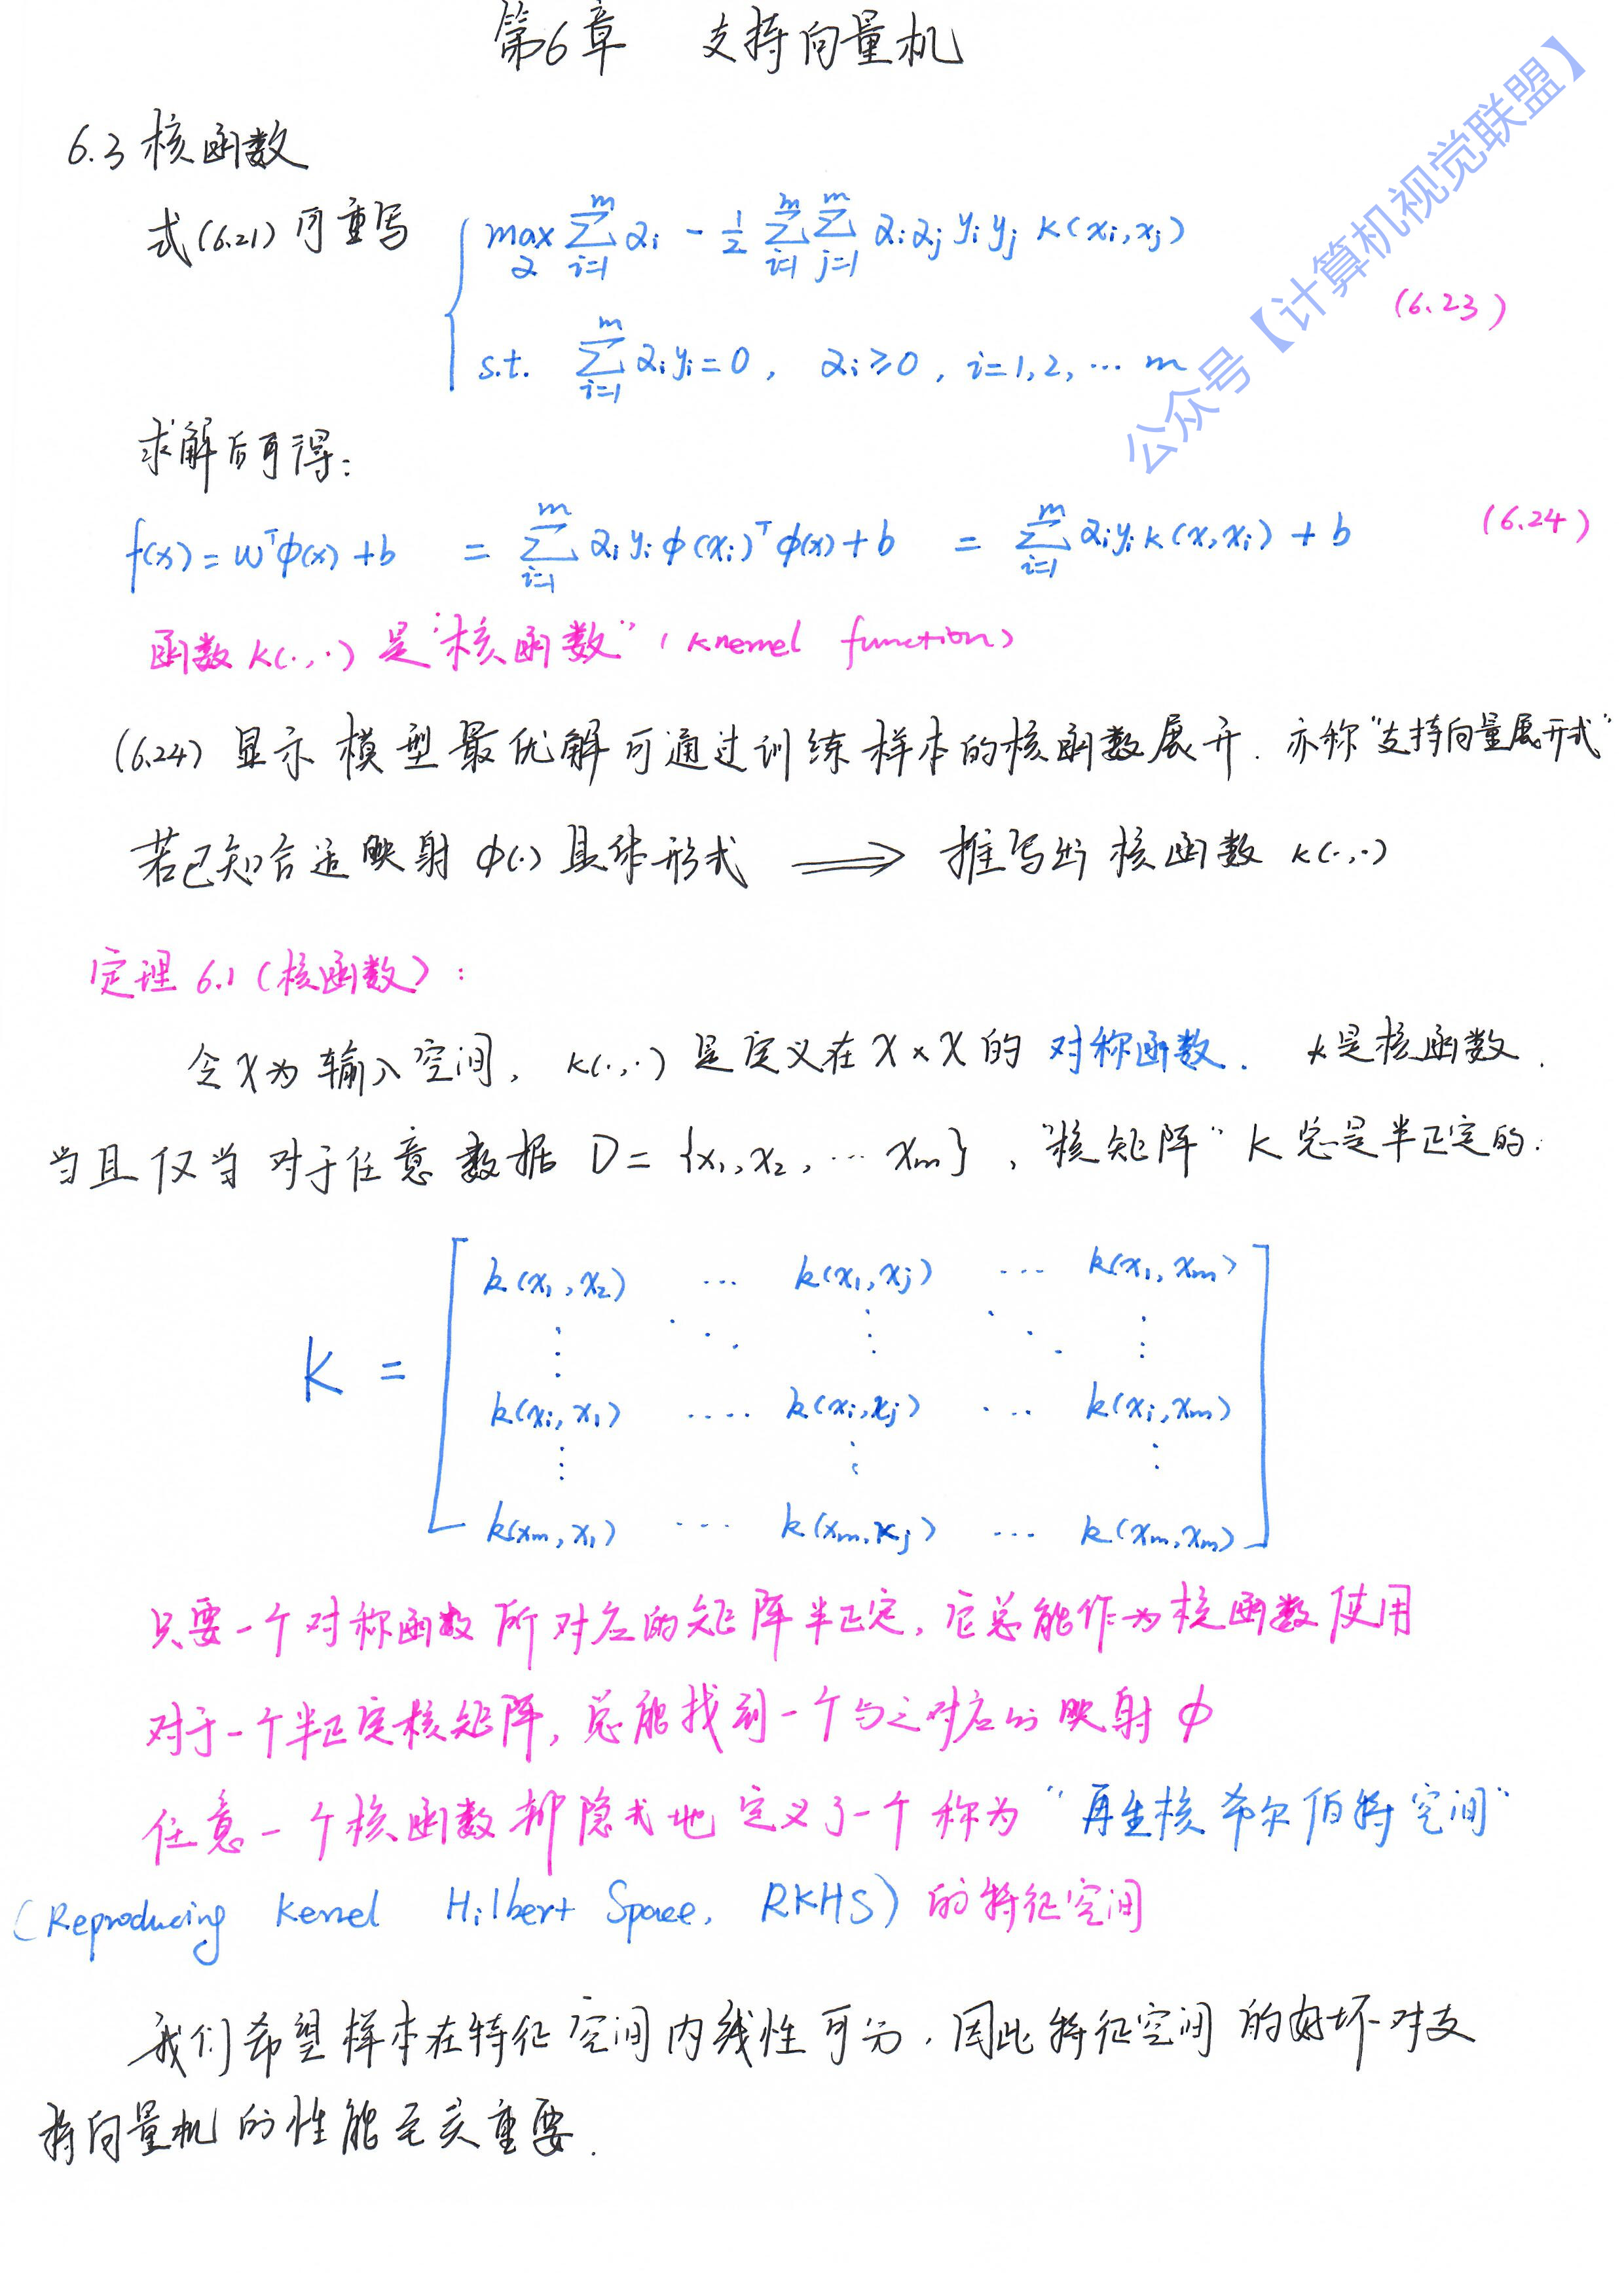 第6章 支持向量机
公众号【计算机视觉联盟】
6.3 核函数
式(6.21)可重写
max_α Σ_{i=1}^{m} αi - 1/2 Σ_{i=1}^{m} Σ_{j=1}^{m} αi αj yi yj κ(xi, xj)
s.t. Σ_{i=1}^{m} αi yi = 0, αi ≥ 0, i=1,2,… m
(6.23)
求解后可得:
f(x) = w^T φ(x) + b = Σ_{i=1}^{m} αi yi φ(xi)^T φ(x) + b = Σ_{i=1}^{m} αi yi κ(x, xi) + b (6.24)
函数 κ(·,·) 是"核函数"(knernel function)
(6.24) 显示模型最优解可通过训练样本的核函数展开. 亦称"支持向量展开式"
若已知合适映射 φ(·) 具体形式 ⟹ 推写出 核函数 κ(·,·)
定理 6.1 (核函数):
令 X 为输入空间, κ(·,·) 是定义在 X × X 的 对称函数. κ是核函数.
当且仅当 对于任意 数据 D = {x1, x2, … xm}, "核矩阵" K 总是半正定的:
K = [
k(x1, x2) … k(x1, xj) … k(x1, xm)
k(xi, x1) …. k(xi, xj) … k(xi, xm)
k(xm, x1) … k(xm, xj) … k(xm, xm) ]
只要一个对称函数所对应的矩阵半正定, 它总能作为核函数使用
对于一个半正定核矩阵, 总能找到一个与之对应的映射 φ
任意一个核函数都隐式地定义了一个称为"再生核希尔伯特空间"
(Reproducing Kernel Hilbert Space, RKHS) 的特征空间
我们希望样本在特征空间内线性可分. 因此特征空间的好坏对支
持向量机的性能至关重要.